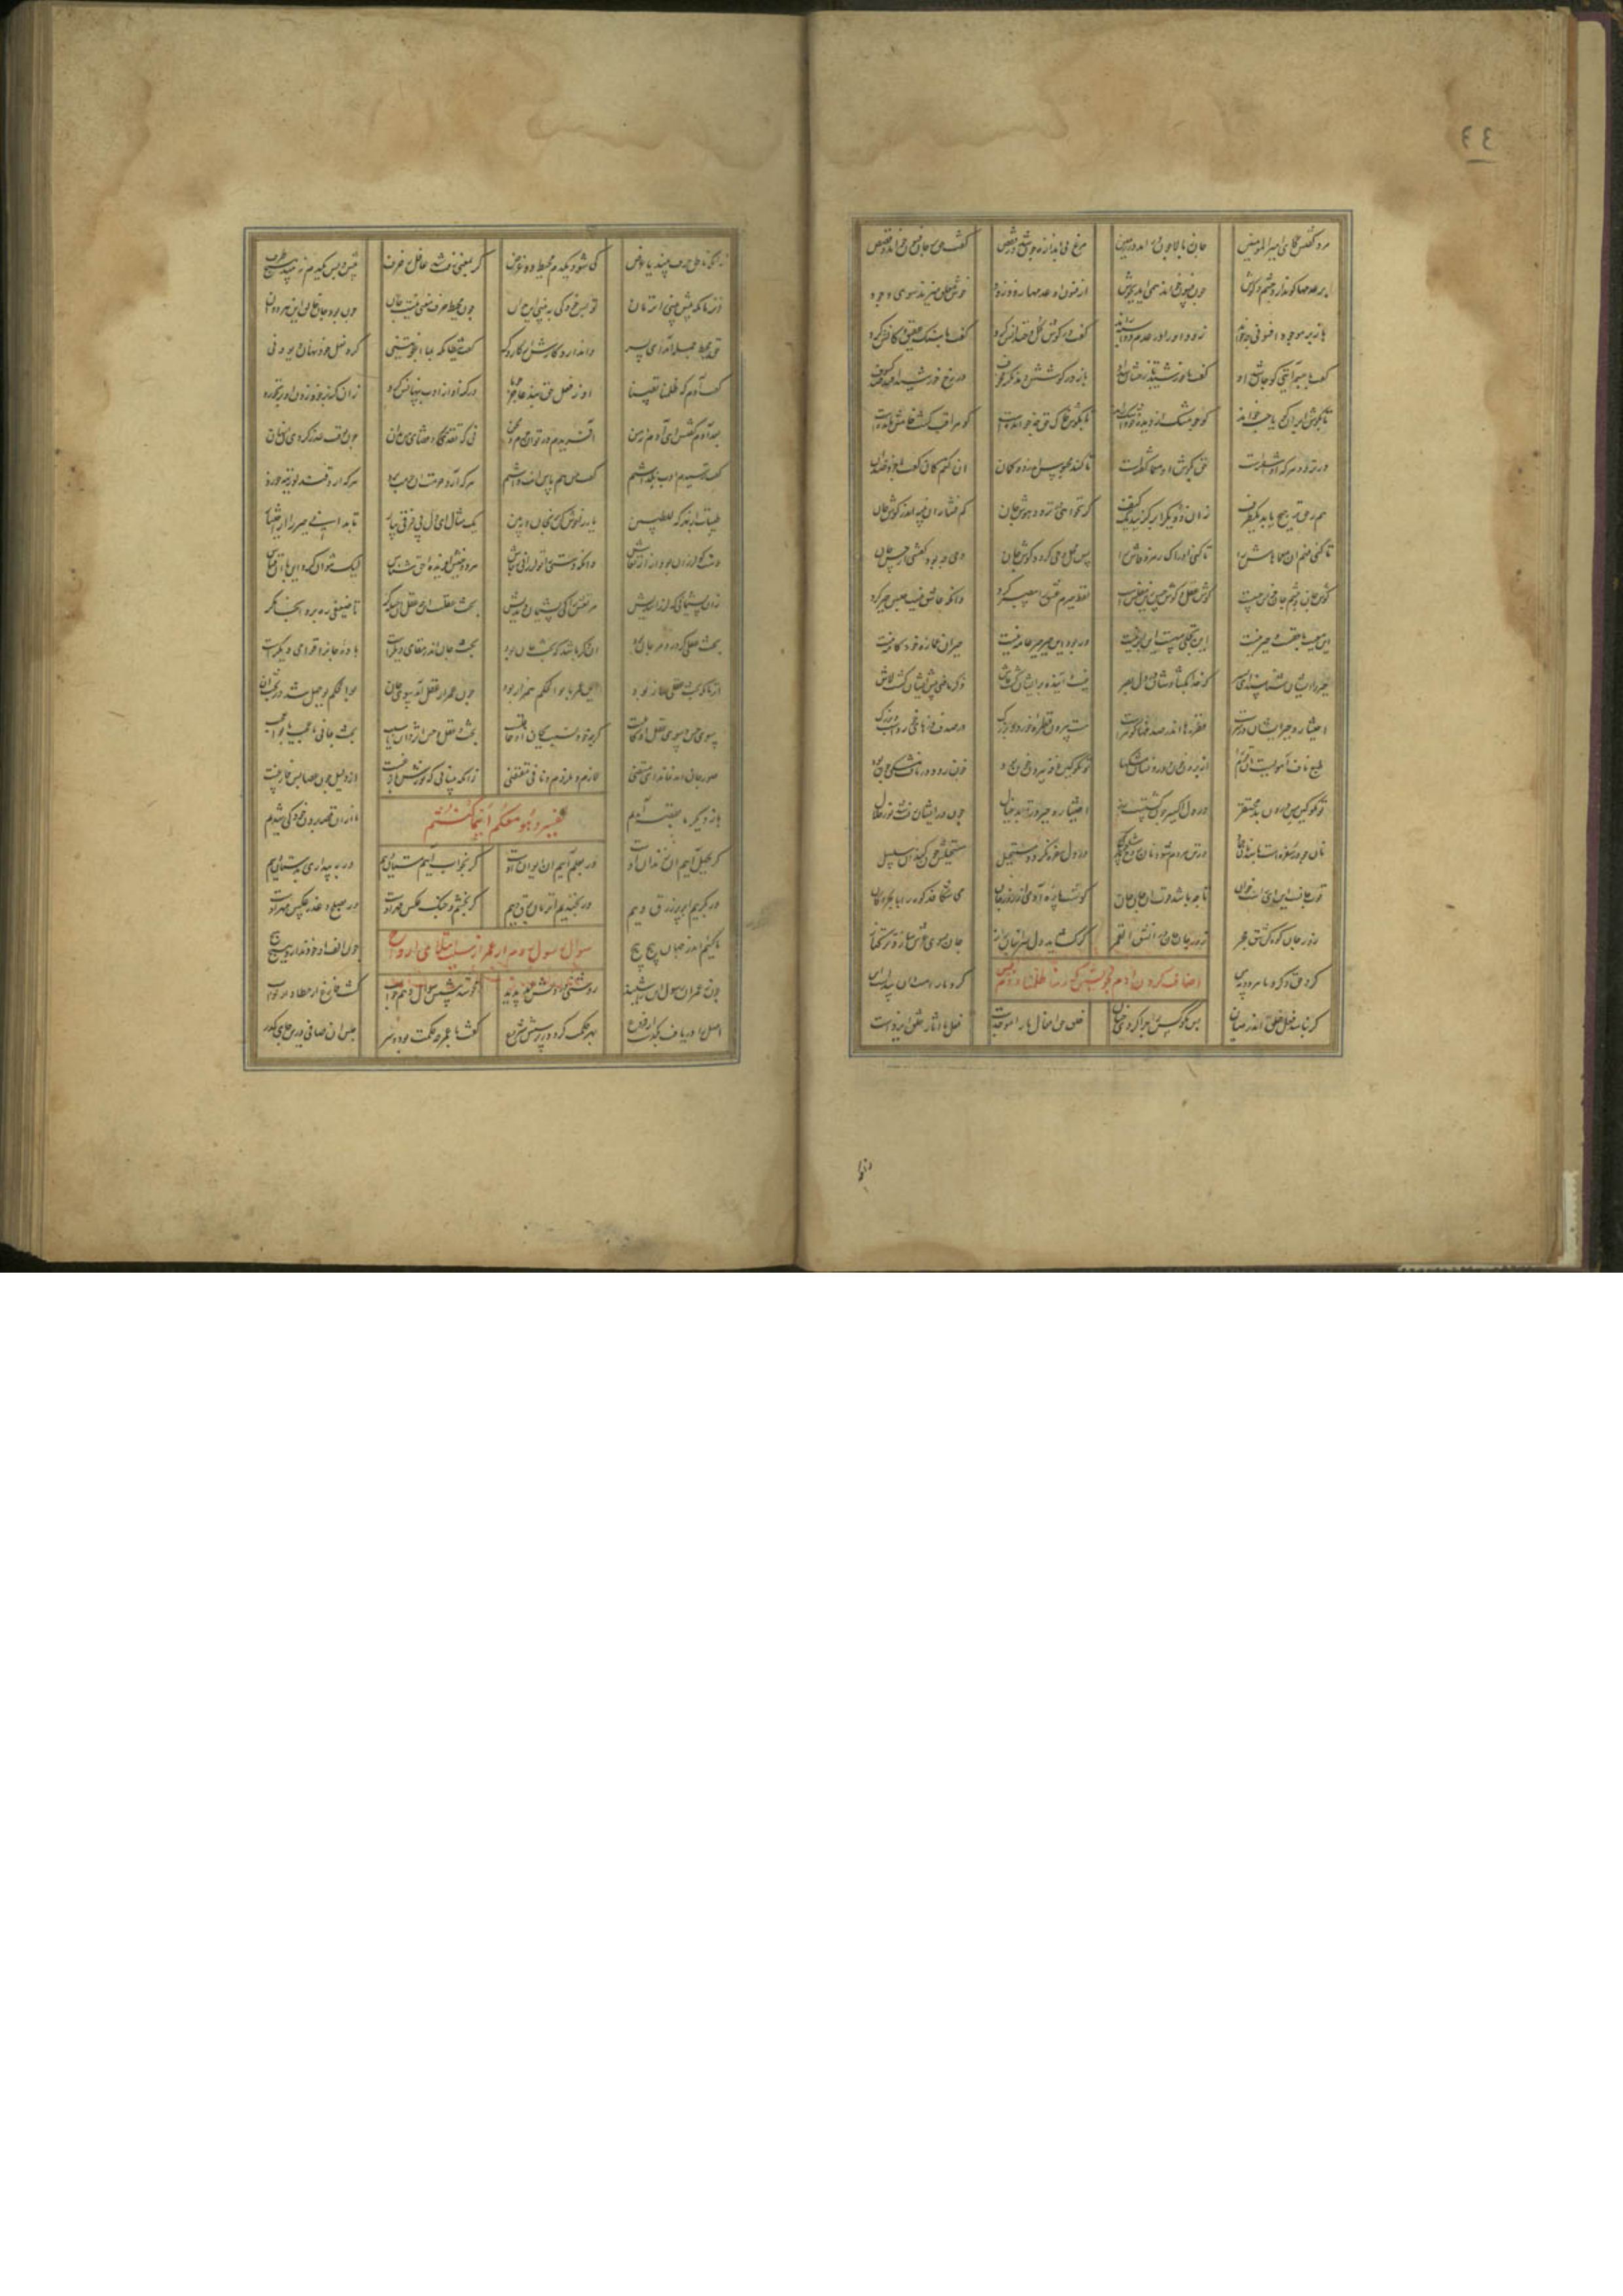 مرد گفتش کای امیرالمومنین جان ز بالا چون در آمد در زمین مرغ بی اندازه چون شد در قفص گفت حق بر جان فسون خواند و قصص
بر عدمها کو ندارد چشم و گوش چون فسون خواند همی آید بجوش از فسون او عدمها زود زود خوش معلق میزند سوی وجود
باز بر موجود افسونی چو خواند زود او را در عدم دو اسبه راند گفت در گوش گل و خندانش کرد گفت با سنگ و عقیق کانش کرد
گفت با جسم آیتی کو جان شد او گفت با خورشید تا رخشان شد او باز در گوشش دمد نکته مخوف در رخ خورشید افتد صد کسوف
تا بگوش ابر آن گویا چه خواند کو چو مشک از دیده خود آب راند تا بگوش خاک حق چه خوانده است کو مراقب گشت و خامش مانده است
در تردد هر که او آشفته است حق بگوش او معما گفته است تا کند محبوسش اندر دو گمان ان کنم کان گفت یا خود ضد آن
هم ز حق ترجیح یابد یک طرف زان دو یک را برگزیند زان کنف گر نخواهی در تردد هوش جان کم فشار این پنبه اندر گوش جان
تا کنی فهم آن معماهاش را تا کنی ادراک رمز و فاش را پس محل وحی گردد گوش جان وحی چه بود گفتنی از حس نهان
گوش جان و چشم جان جز این حس است گوش عقل و گوش ظن زین مفلس است لفظ جبرم عشق را بی صبر کرد وانکه عاشق نیست حبس جبر کرد
این معیت با حقست و جبر نیست این تجلی مه است این ابر نیست ور بود این جبر جبر عامه نیست جبر آن اماره خود کامه نیست
جبر را ایشان شناسند ای پسر که خدا بگشادشان در دل بصر غیب و آینده بر ایشان گشت فاش ذکر ماضی پیش ایشان گشت لاش
اختیار و جبر ایشان دیگرست قطره ها اندر صدفها گوهرست هست بیرون قطره خرد و بزرگ در صدف
طبع ناف آهوست آن قوم را از برون خون و درونشان مشکها تو مگو کین بیرون خون بود چون رود در ناف مشکی چون شود
تو مگو کین مس برون بد محتقر در دل اکسیر چون اختیار و جبر در تو بد خیال چون در ایشان رفت شد نور جلال
نان چو در سفره است در تن مردم شود در دل سفره نگردد مستحیل مستحیلش جان کند از سلسبیل
قوت جانست این ای راست خوان تا چه باشد قوت آن جان جان گوشت پاره آدمی از زور جان می شکافد کوه را با بحر و کان
زور جان کوه کن شق حجر زور جان جان در انشق القمر گر گشاید دل سر انبان راز جان بسوی عرش سازد ترکتاز
کرد حق و کرد ما هر دو ببین اضافت کردن آدم خویشتن ربنا ظلمنا کرد ما را هست دان پیداست این
گر نباشد فعل خلق اندر میان پس مگو کس را چرا کردی چنان خلق حق افعال ما را موجدست فعل ما آثار خلق ایزدست
زانکه ناطق حرف بیند یا غرض کی شود یکدم محیط دو عرض گر بمعنی رفت شد غافل ز حرف پیش و پس یکدم نبیند هیچ طرف
آن زمان که پیش بینی آن زمان تو پس خود کی ببینی این بدان چون محیط حرف و معنی نیست جان چون بود جان خالق این هر دوان
حق محیط جمله آمد ای پسر وا ندارد کارش از کار دگر گفت شیطان که بما اغویتنی کرد فعل خود نهان دیو دنی
گفت آدم که ظلمنا نفسنا او ز فعل حق نبد غافل چو ما در گنه او از ادب پنهانش کرد زان گنه بر خود زدن او بر بخورد
بعد توبه گفتش ای آدم نه من آفریدم در تو آن جرم و محن نی که تقدیر و قضای من بد آن چون بوقت عذر کردی آن نهان
گفت ترسیدم ادب نگذاشتم گفت من هم پاس آنت داشتم هر که آرد حرمت آن حرمت برد هر که آرد قند لوزینه خورد
طیبات از بهر که للطیبین یار را خوش کن برنجان و ببین یک مثال ای دل پی فرقی بیار تا بدانی جبر را از اختیار
دست کو لرزان بود از ارتعاش وانکه دستی را تو لرزانی ز جاش هر دو جنبش آفریده حق شناس لیک نتوان کرد این با آن قیاس
زان پشیمانی که لرزانیدیش مرتعش را کی پشیمان دیدیش بحث عقلست این چه عقل آن حیله گر تا ضعیفی ره برد آنجا مگر
بحث عقلی گر در و مرجان بود آن دگر باشد که بحث جان بود بحث جان اندر مقامی دیگرست باده جان را قوامی دیگرست
آن زمان که بحث عقلی ساز بود این عمر با بوالحکم همراز بود چون عمر از عقل آمد سوی جان بوالحکم بوجهل شد در بحث آن
سوی حس و سوی عقل او کاملست گرچه خود نسبت بجان او جاهلست بحث عقل و حس اثر دان یا سبب بحث جانی یا عجب یا بوالعجب
ضوء جان آمد نماند ای مستضی لازم و ملزوم و نافی مقتضی زانکه بینایی که نورش بازغست از دلیل چون عصا بس فارغست
بار دیگر ما بقصه آمدیم تفسیر و هو معکم اینما کنتم ما از آن قصه برون خود کی شدیم
گر بجهل آییم آن زندان اوست ور بعلم آییم آن ایوان اوست گر بخواب آییم مستان وییم ور به بیداری بدستان وییم
ور بگرییم ابر پر زرق وییم ور بخندیم آن زمان برق وییم گر بخشم و جنگ عکس قهر اوست ور بصلح و عذر عکس مهر اوست
ما کییم اندر جهان پیچ پیچ سوال رسول روم از عمر از سبب ابتلای ارواح چون الف او خود ندارد هیچ هیچ
چون ز عمر آن رسول این را شنید روشنی در دلش آمد پدید محو شد پیشش سوال و هم جواب گشت فارغ از خطا و از صواب
اصل را دریافت بگذشت از فروع بهر حکمت کرد در پرسش شروع گفت یا عمر چه حکمت بود و سر حبس آن صافی درین جای کدر